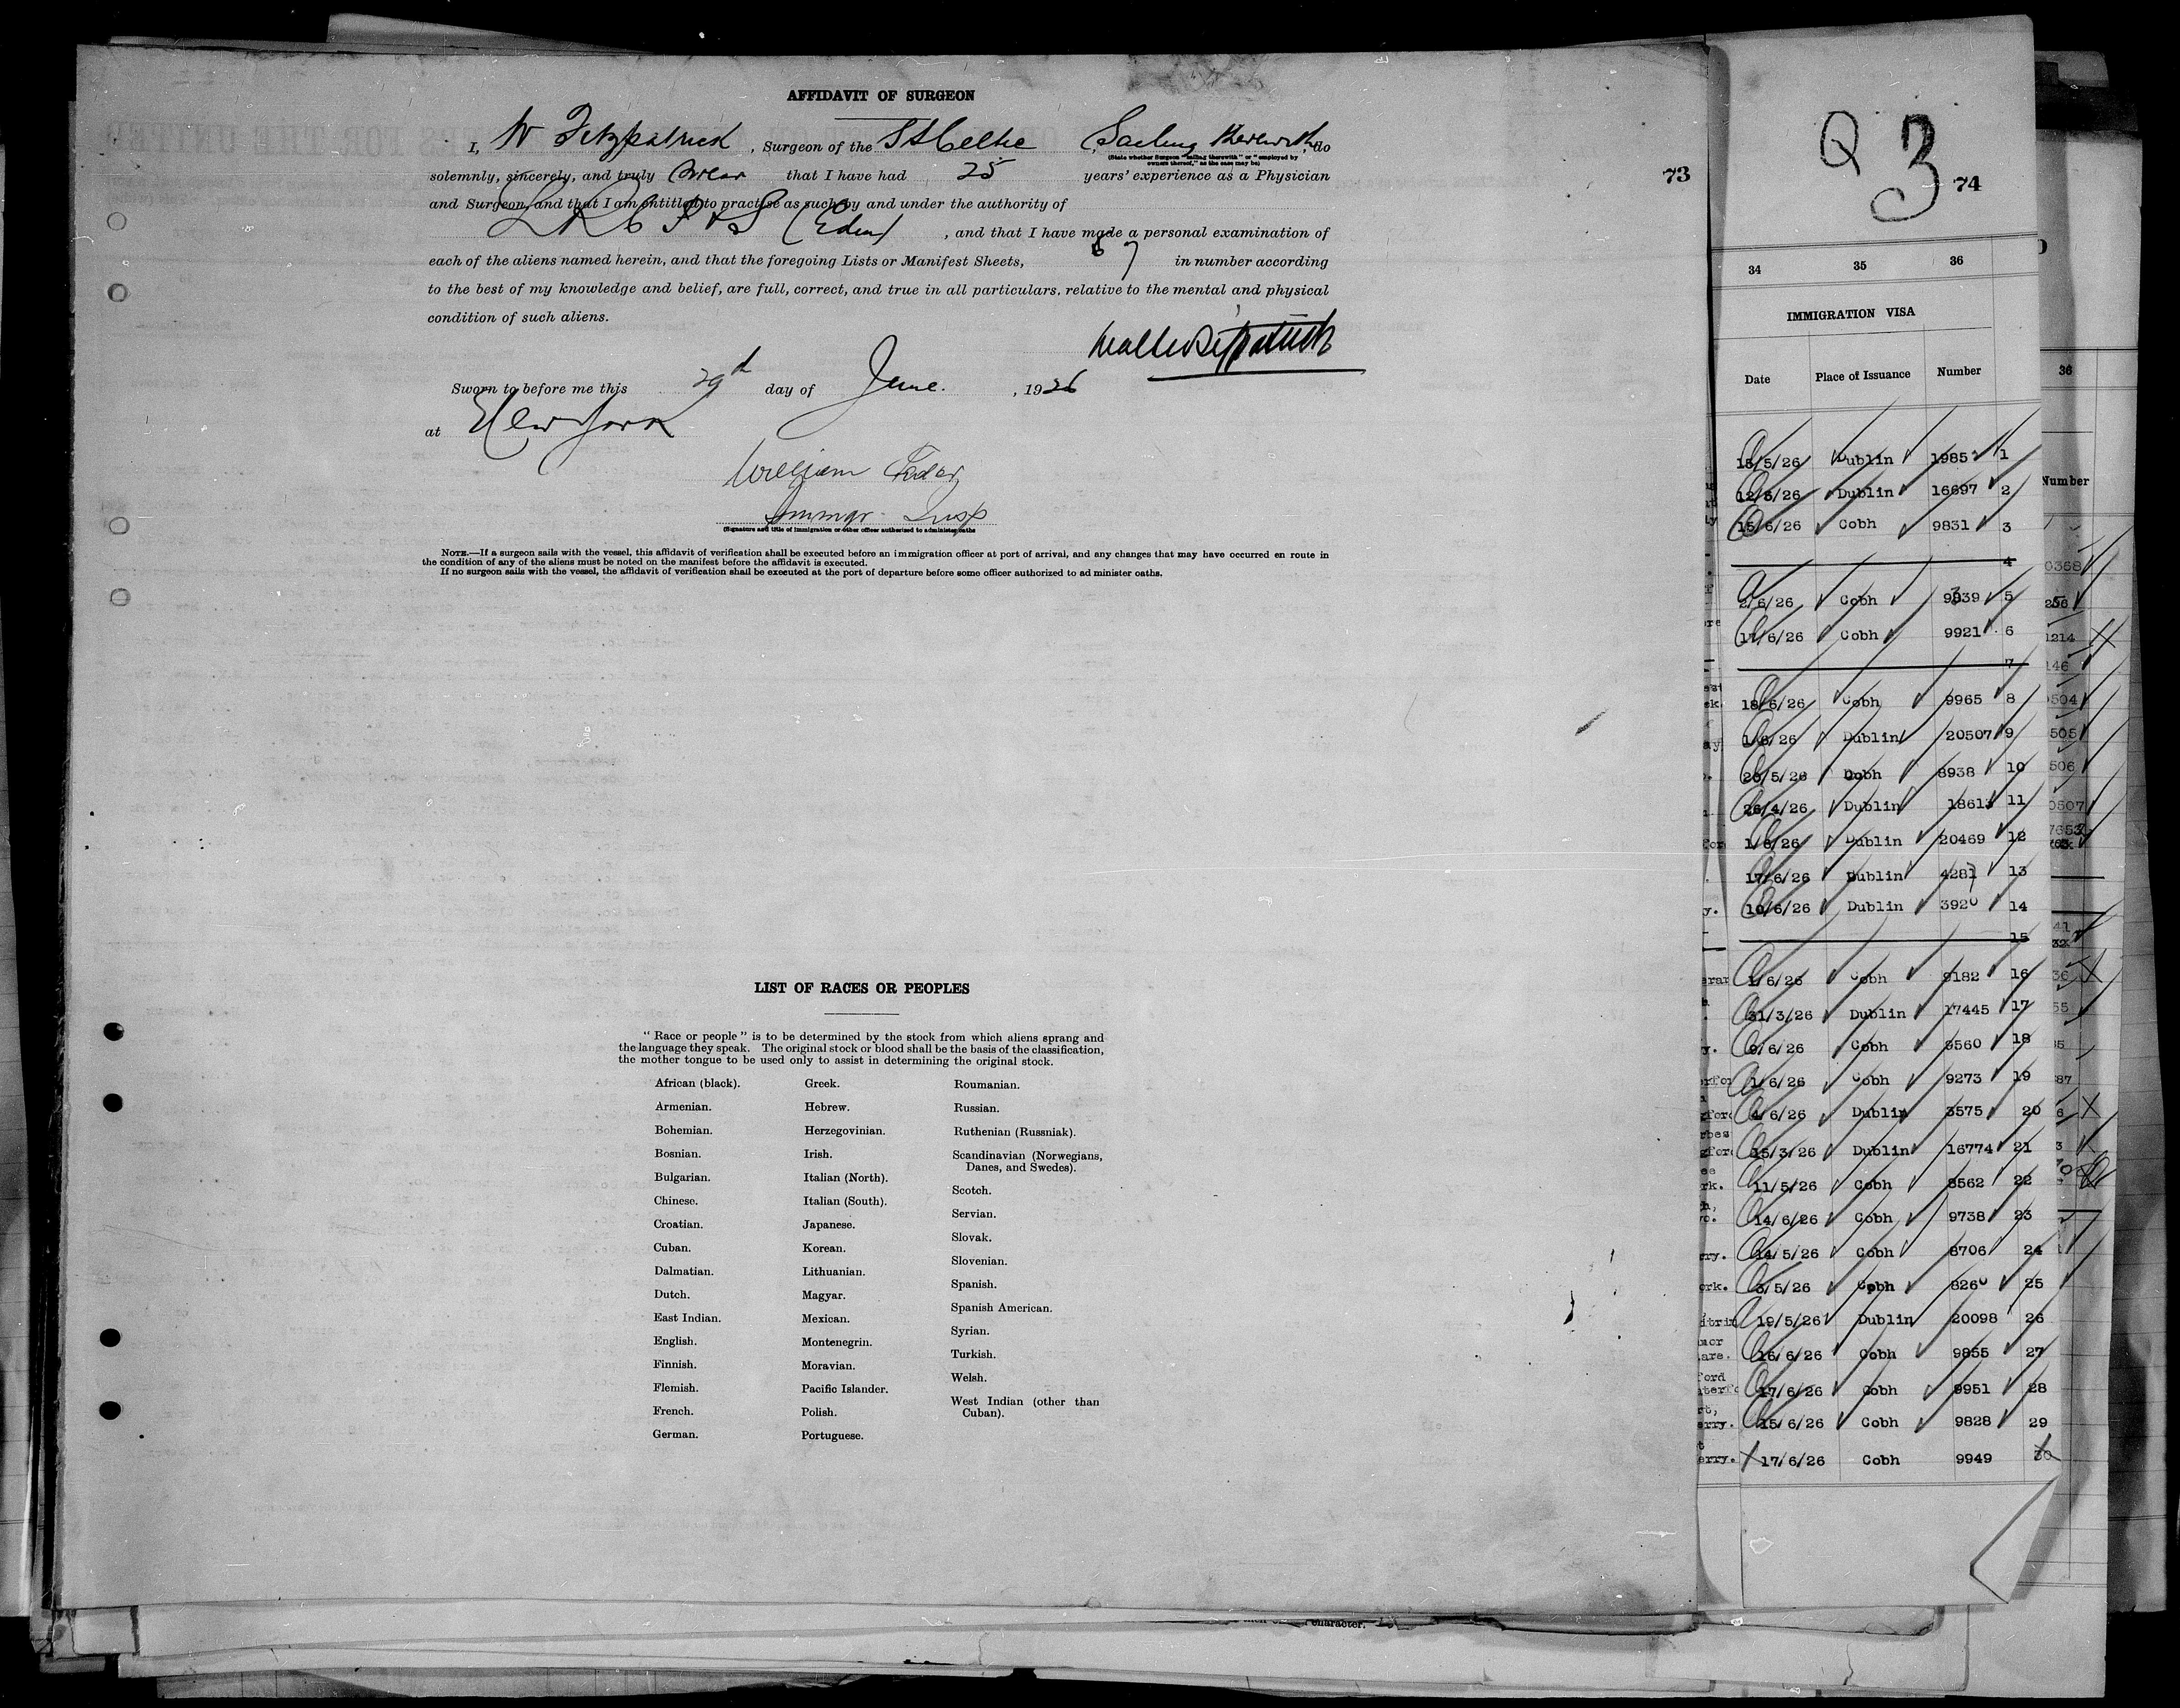 AFFIDAVIT OF SURGEON
I, W Fitzpatrick, Surgeon of the SS Celtic Sailing therewith, do
(State whether Surgeon "sailing therewith" or "employed by
owners thereof," as the case may be)
solemnly, sincerely, and truly swear that I have had 25 years' experience as a Physician
and Surgeon, and that I am entitled to practise as such by and under the authority of
LRCP&S (Edin), and that I have made a personal examination of
each of the aliens named herein, and that the foregoing Lists or Manifest Sheets, 7 in number according
to the best of my knowledge and belief, are full, correct, and true in all particulars, relative to the mental and physical
condition of such aliens.
Walter Fitzpatrick
Sworn to before me this 29th day of June, 1926
at New York
William
Immgr. Insp
(Signature and title of immigration or other officer authorized to administer oaths
NOTE.—If a surgeon sails with the vessel, this affidavit of verification shall be executed before an immigration officer at port of arrival, and any changes that may have occurred en route in
the condition of any of the aliens must be noted on the manifest before the affidavit is executed.
If no surgeon sails with the vessel, the affidavit of verification shall be executed at the port of departure before some officer authorized to administer oaths.
LIST OF RACES OR PEOPLES
"Race or people" is to be determined by the stock from which aliens sprang and
the language they speak. The original stock or blood shall be the basis of the classification,
the mother tongue to be used only to assist in determining the original stock.
African (black).
Armenian.
Bohemian.
Bosnian.
Bulgarian.
Chinese.
Croatian.
Cuban.
Dalmatian.
Dutch.
East Indian.
English.
Finnish.
Flemish.
French.
German.
Greek.
Hebrew.
Herzegovinian.
Irish.
Italian (North).
Italian (South).
Japanese.
Korean.
Lithuanian.
Magyar.
Mexican.
Montenegrin.
Moravian.
Pacific Islander.
Polish.
Portuguese.
Roumanian.
Russian.
Ruthenian (Russniak).
Scandinavian (Norwegians,
Danes, and Swedes).
Scotch.
Servian.
Slovak.
Slovenian.
Spanish.
Spanish American.
Syrian.
Turkish.
Welsh.
West Indian (other than
Cuban).
73
Q 3
74
34 35 36
IMMIGRATION VISA
Date Place of Issuance Number
15/5/26 Dublin 1985 1
12/5/26 Dublin 16697 2
15/6/26 Cobh 9831 3
4
2/6/26 Cobh 9339 5
17/6/26 Cobh 9921 6
7
18/6/26 Cobh 9965 8
1/6/26 Dublin 20507 9
20/5/26 Cobh 8938 10
26/4/26 Dublin 18613 11
1/6/26 Dublin 20469 12
17/6/26 Dublin 4281 13
10/6/26 Dublin 3920 14
15
1/6/26 Cobh 9182 16
31/3/26 Dublin 17445 17
9/6/26 Cobh 18
1/6/26 Cobh 9273 19
4/6/26 Dublin 3575 20
15/3/26 Dublin 16774 21
11/5/26 Cobh 8562 22
14/6/26 Cobh 9738 23
14/5/26 Cobh 8706 24
3/5/26 Cobh 8260 25
19/5/26 Dublin 20098 26
16/6/26 Cobh 9855 27
17/6/26 Cobh 9951 28
15/6/26 Cobh 9828 29
17/6/26 Cobh 9949 30
36
Number
character.